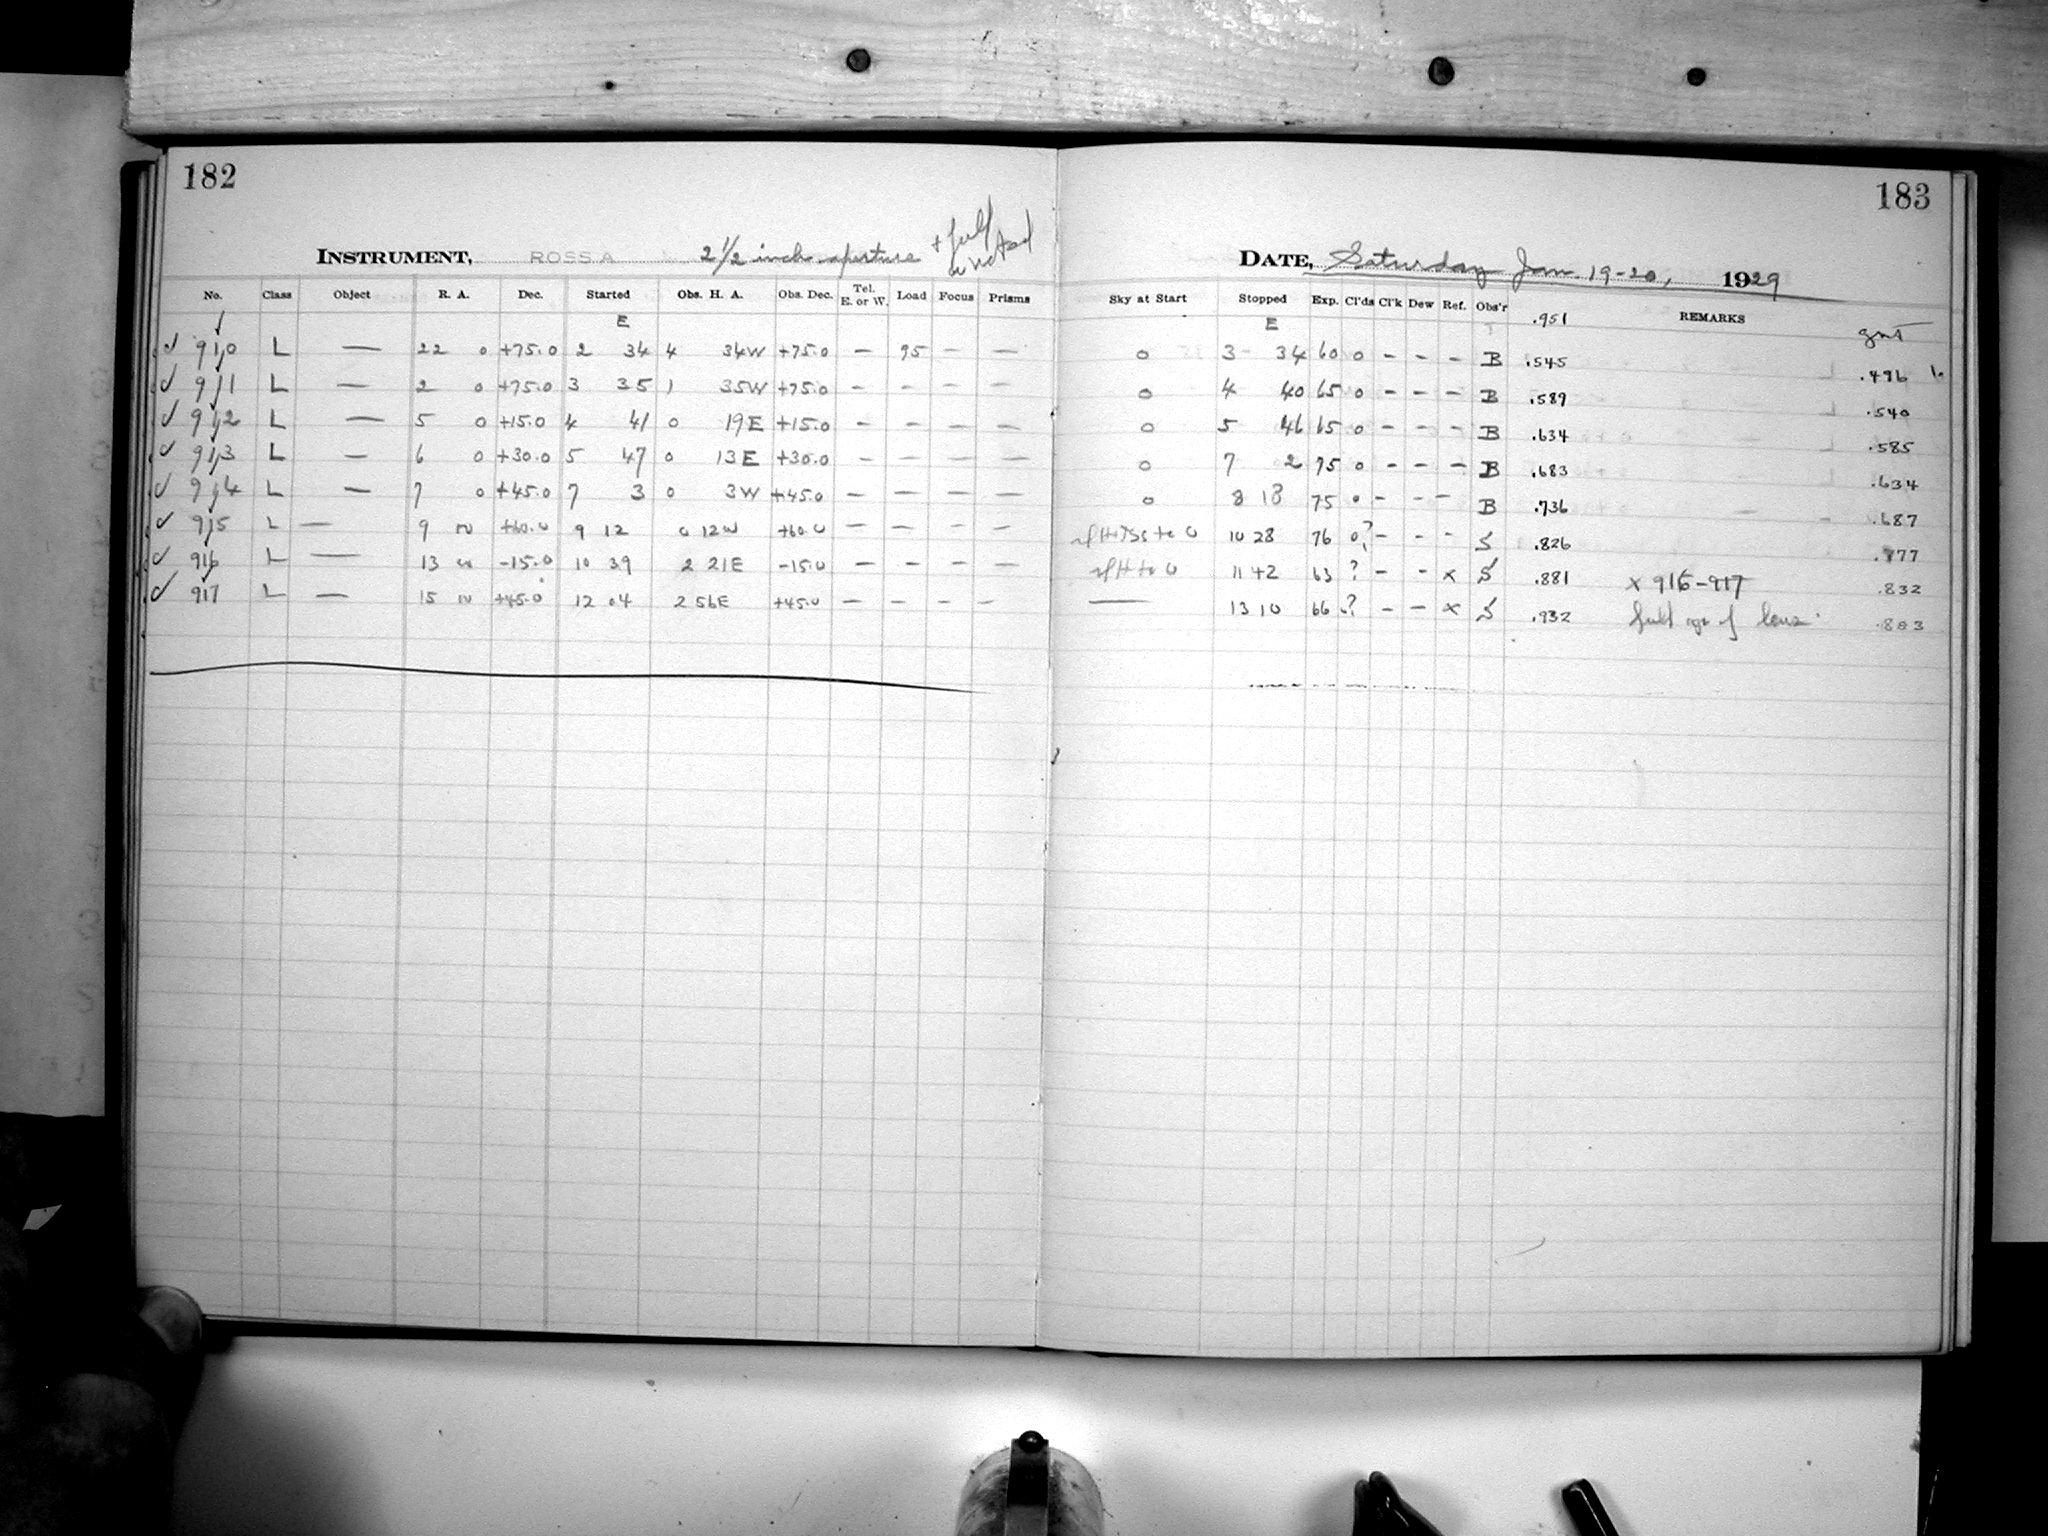 182
INSTRUMENT, ROSS A 2 1/2 inch aperture + full
as noted
No. Class Object R. A. Dec. Started Obs. H. A. Obs. Dec. Tel. E. or W. Load Focus Prisms
E
✓ 910 L — 22 0 +75.0 2 34 4 34W +75.0 — 95 — —
✓ 911 L — 2 0 +75.0 3 35 1 35W +75.0 — — — —
✓ 912 L — 5 0 +15.0 4 41 0 19E +15.0 — — — —
✓ 913 L — 6 0 +30.0 5 47 0 13E +30.0 — — — —
✓ 914 L — 7 0 +45.0 7 3 0 3W +45.0 — — — —
✓ 915 L — 9 0 +60.0 9 12 0 12W +60.0 — — — —
✓ 916 L — 13 0 -15.0 10 39 2 21E -15.0 — — — —
✓ 917 L — 15 0 +45.0 12 04 2 56E +45.0 — — — —
183
DATE, Saturday Jan. 19-20, 1929
Sky at Start Stopped Exp. Cl'ds Cl'k Dew Ref. Obs'r .951 REMARKS gmt
E
0 3 34 60 0 - - - B .545 .496
0 4 40 65 0 - - - B .589 .540
0 5 46 65 0 - - - B .634 .585
0 7 2 75 0 - - - B .683 .634
0 8 18 75 0 - - - B .736 .687
to 0 10 28 76 0? - - - S .826 .777
to 0 11 42 63 ? - - x S .881 x 916-917 .832
— 13 10 66 ? - - x S .932 full ap. of lens. .883